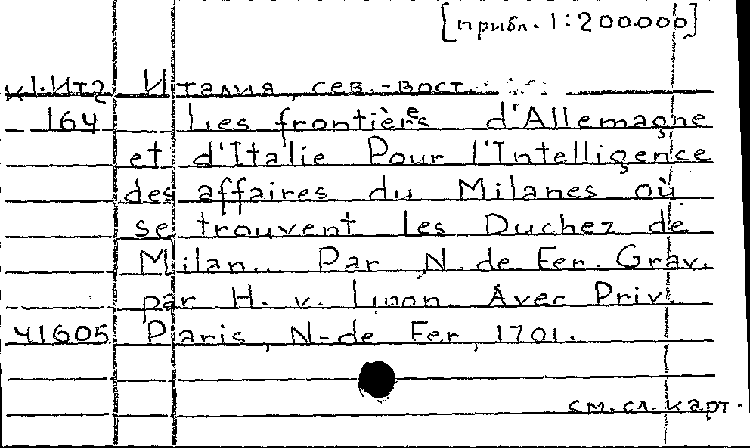 [прибл. 1:200000]
к1.Ит2 Италия, сев.-вост.
164 Les frontières d'Allemagne
et d'Italie Pour l'Intelligence
des affaires du Milanes où
se trouvent les Duchez de
Milan.. Par N. de Fer. Grav.
par H. v. Luon. Avec Priv.
41605 Paris, N-de Fer, 1701.
см. сл. карт.